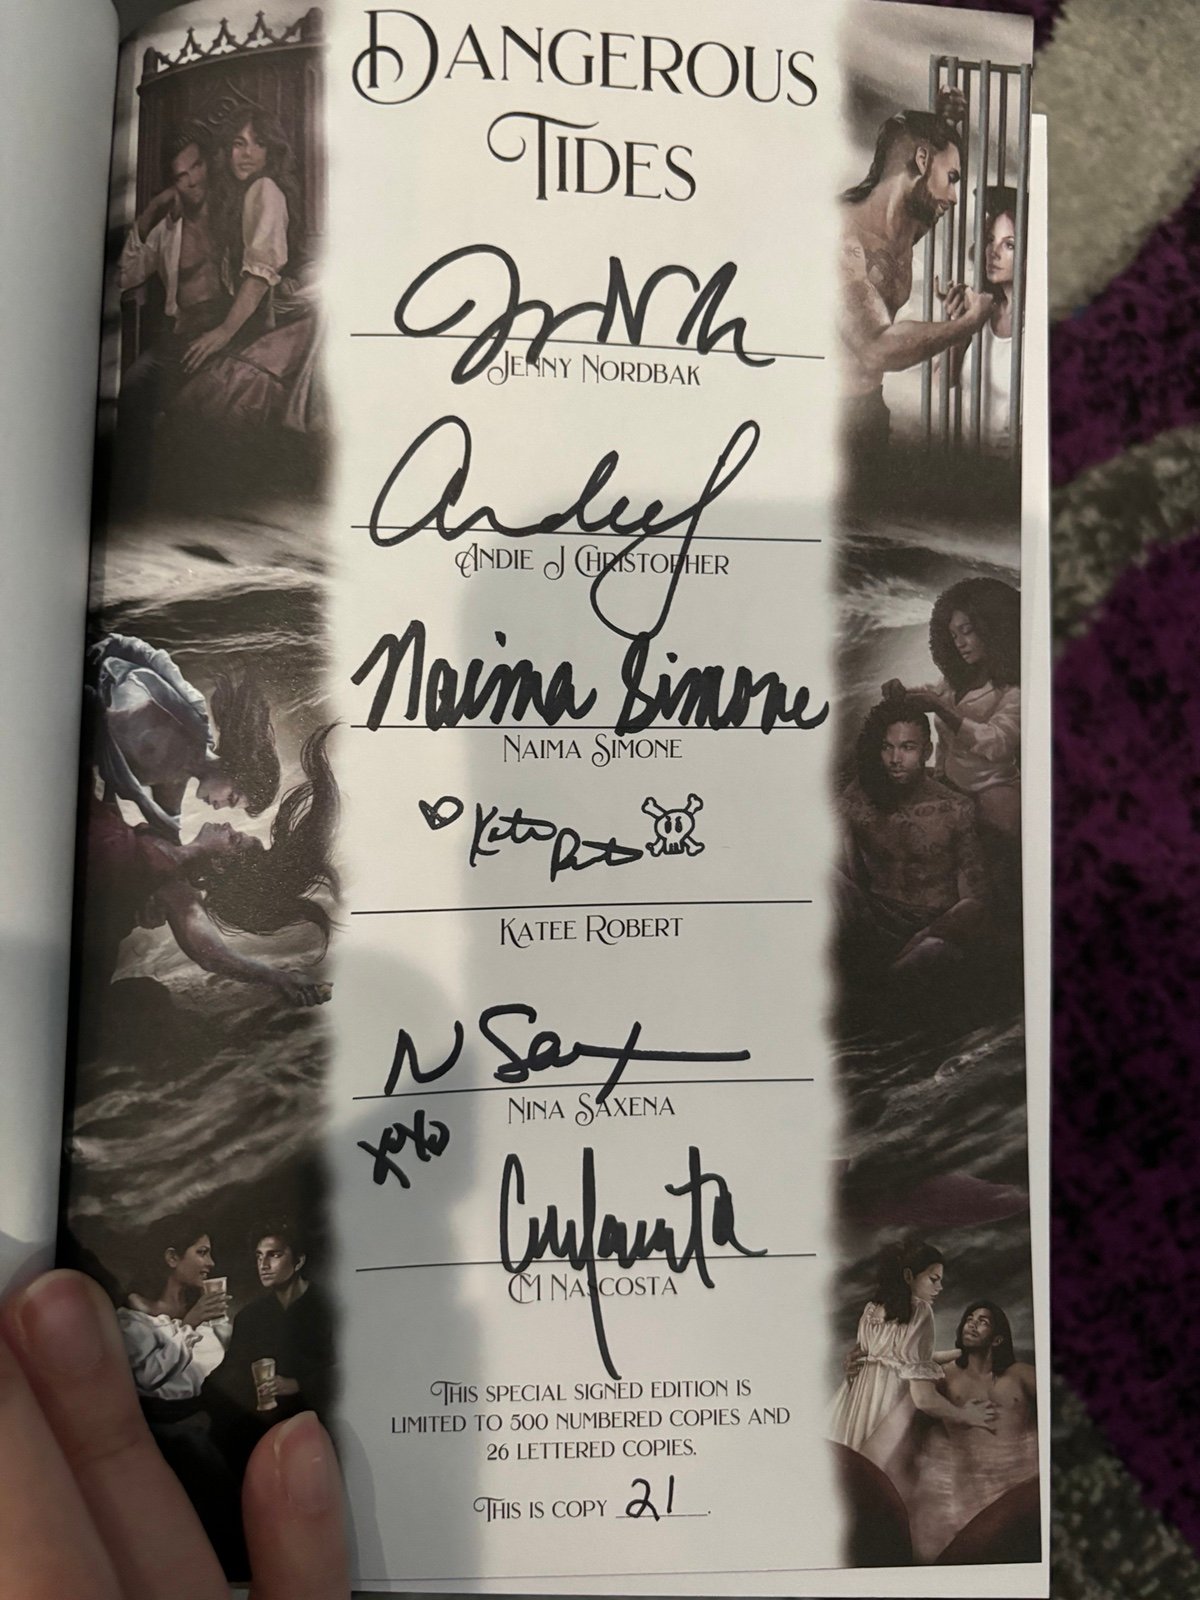 DANGEROUS
TIDES
JENNY NORDBAK
ANDIE J CHRISTOPHER
Naima Simone
NAIMA SIMONE
KATEE ROBERT
N Sax
NINA SAXENA
xoxo
CM NASCOSTA
THIS SPECIAL SIGNED EDITION IS
LIMITED TO 500 NUMBERED COPIES AND
26 LETTERED COPIES.
THIS IS COPY 21.